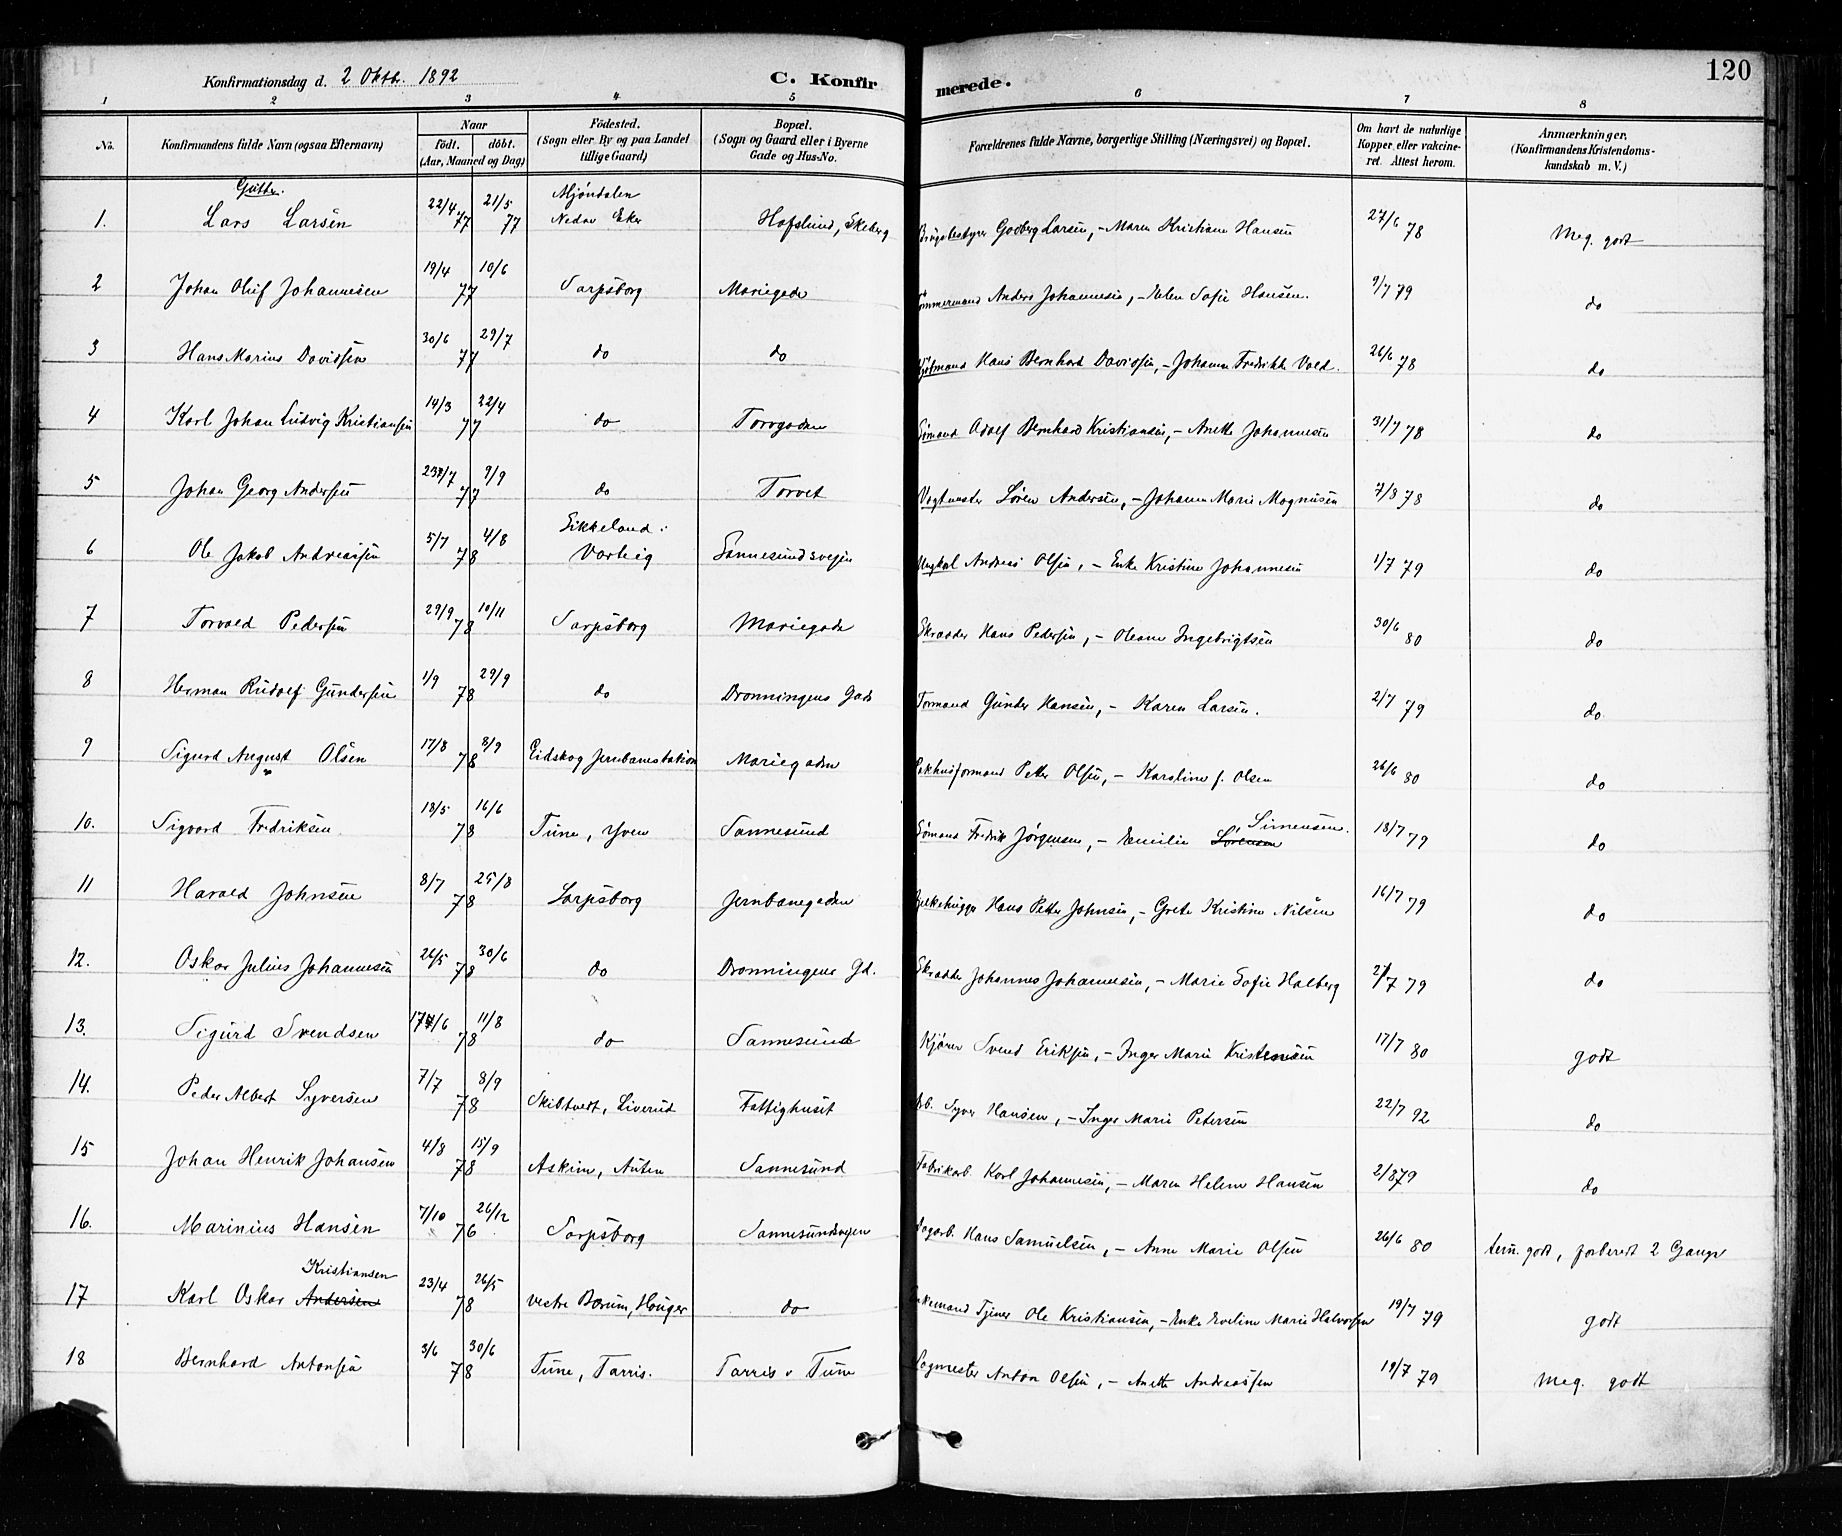 120
Konfirmationsdag d. 2 Oktbr. 1892
C. Konfirmerede.
1 2 3 4 5 6 7 8
No. | Konfirmandens fulde Navn (ogsaa Efternavn) | Naar Födt. döbt. (Aar, Maaned og Dag) | Födested. (Sogn eller By og paa Landet tillige Gaard) | Bopæl. (Sogn og Gaard eller i Byerne Gade og Hus-No. | Forældrenes fulde Navne, borgerlige Stilling (Næringsvei) og Bopæl. | Om havt de naturlige Kopper eller vakcineret. Attest herom. | Anmærkninger. (Konfirmandens Kristendomskundskab m. V.)
Gutter.
1. Lars Larsen 22/4 77 21/5 77 Mjöndalen Nedre Eker Hafslund, Skeberg Brugsbestyrer Godberg Larsen, - Maren Kristiane Hansen 27/6 78 Meg. godt
2 Johan Oluf Johannesen 19/4 77 10/6 Sarpsborg Mariegade Tömmermand Anders Johannesen, - Helen Sofie Hansen. 9/7 79 do
3 Hans Marius Davidsen 30/6 77 29/7 do do Hans Bernhard Davidsen, - Johanne Fredrikke Vold. 26/6 78 do
4 Karl Johan Ludvig Kristiansen 14/3 77 22/4 do Torvgaden Sömand Adolf Bernhard Kristiansen, - Anette Johannesen 31/7 78 do
5 Johan Georg Andersen 23/7 77 9/9 do Torvet Vogtmester Sören Andersen, - Johanne Marie Magnusen 7/8 78 do
6 Ole Jakob Andreassen 5/7 78 4/8 Eikkeland i Varteig Sannesundsvejen Ungkarl Andreas Olsen, - Enke Kristine Johannesen 1/7 79 do
7 Torvald Pedersen 29/9 78 10/11 Sarpsborg Mariegade Skrædder Hans Pedersen, - Oleane Ingebrigtsen 30/6 80 do
8 Herman Rudolf Gundersen 1/9 78 29/9 do Dronningens Gade Formand Gunder Hansen, - Karen Larsen. 2/7 79 do
9 Sigurd August Olsen 17/8 78 8/9 Eidskog Jernbanestation Mariegaden Pakhusformand Petter Olsen, - Karoline f. Olsen 26/6 80 do
10. Sigvard Fredriksen 18/5 78 16/6 Tune, Yven Sannesund Sömand Fredrik Jörgensen, - Emilie Sörensen Simensen. 18/7 79 do
11 Harald Johnsen 8/7 78 25/8 Sarpsborg Jernbanegaden Bjelkehugger Hans Petter Johnsen, - Grete Kristine Nilsen 16/7 79 do
12. Oskar Julius Johannesen 26/5 78 30/6 do Dronningens Gd. Skrædder Johannes Johannesen, - Marie Sofie Halberg 2/7 79 do
13. Sigurd Svendsen 17/6 78 11/8 do Sannesund Kjörer Svend Eriksen, - Inger Marie Kristensen 17/7 80 godt
14. Peder Albert Syversen 7/7 78 8/9 Skibtvedt, Liverud Fattighuset Arb. Syver Hansen, - Inger Marie Petersen 22/7 92 do
15 Johan Henrik Johansen 4/8 78 15/9 Askim, Auten Sannesund Fabrikarb. Karl Johannesen, - Maren Helene Hansen 2/8 79 do
16. Marinius Hansen 7/10 76 26/12 Sarpsborg Sannesundsvejen Dagarb. Hans Samuelsen, - Anne Marie Olsen 26/6 80 tem. godt, forberedt 2 Gange
17 Karl Oskar Andersen Kristiansen 23/4 78 26/5 vestre Bærum, Houger do Enkemand Tjener Ole Kristiansen, - Enke Eveline Marie Halvorsen 19/7 79 godt
18 Bernhard Antonsen 3/6 78 30/6 Tune, Tarris. Tarris i Tune Sagmester Anton Olsen, - Anette Andreassen 19/7 79 Meg. godt